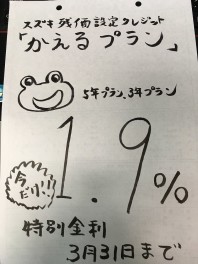 スズキ残価設定クレジット
「かえるプラン」
5年プラン、3年プラン
今だけ!!
1.9%
特別金利
3月31日まで